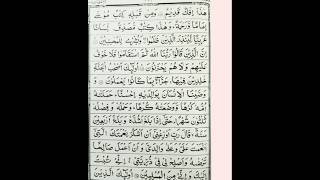 هٰذَآ اِفْكٌ قَدِيْمٌ ۝ وَمِنْ قَبْلِهٖ كِتٰبُ مُوْسٰٓى
اِمَامًا وَّرَحْمَةً ؕ وَهٰذَا كِتٰبٌ مُّصَدِّقٌ لِّسَانًا
عَرَبِيًّا لِّيُنْذِرَ الَّذِيْنَ ظَلَمُوْا ۖ وَبُشْرٰى لِلْمُحْسِنِيْنَ
اِنَّ الَّذِيْنَ قَالُوْا رَبُّنَا اللّٰهُ ثُمَّ اسْتَقَامُوْا فَلَا خَوْفٌ
عَلَيْهِمْ وَلَا هُمْ يَحْزَنُوْنَ ۝ اُولٰٓئِكَ اَصْحٰبُ الْجَنَّةِ
خٰلِدِيْنَ فِيْهَا ۚ جَزَآءًۢ بِمَا كَانُوْا يَعْمَلُوْنَ ۝
وَوَصَّيْنَا الْاِنْسَانَ بِوَالِدَيْهِ اِحْسٰنًا ؕ حَمَلَتْهُ
اُمُّهٗ كُرْهًا وَّوَضَعَتْهُ كُرْهًا ؕ وَحَمْلُهٗ وَفِصٰلُهٗ
ثَلٰثُوْنَ شَهْرًا ؕ حَتّٰٓى اِذَا بَلَغَ اَشُدَّهٗ وَبَلَغَ اَرْبَعِيْنَ
سَنَةً ۙ قَالَ رَبِّ اَوْزِعْنِيْٓ اَنْ اَشْكُرَ نِعْمَتَكَ الَّتِيْٓ
اَنْعَمْتَ عَلَيَّ وَعَلٰى وَالِدَيَّ وَاَنْ اَعْمَلَ صَالِحًا
تَرْضٰىهُ وَاَصْلِحْ لِيْ فِيْ ذُرِّيَّتِيْ ؕ اِنِّيْ تُبْتُ
اِلَيْكَ وَاِنِّيْ مِنَ الْمُسْلِمِيْنَ ۝ اُولٰٓئِكَ الَّذِيْنَ